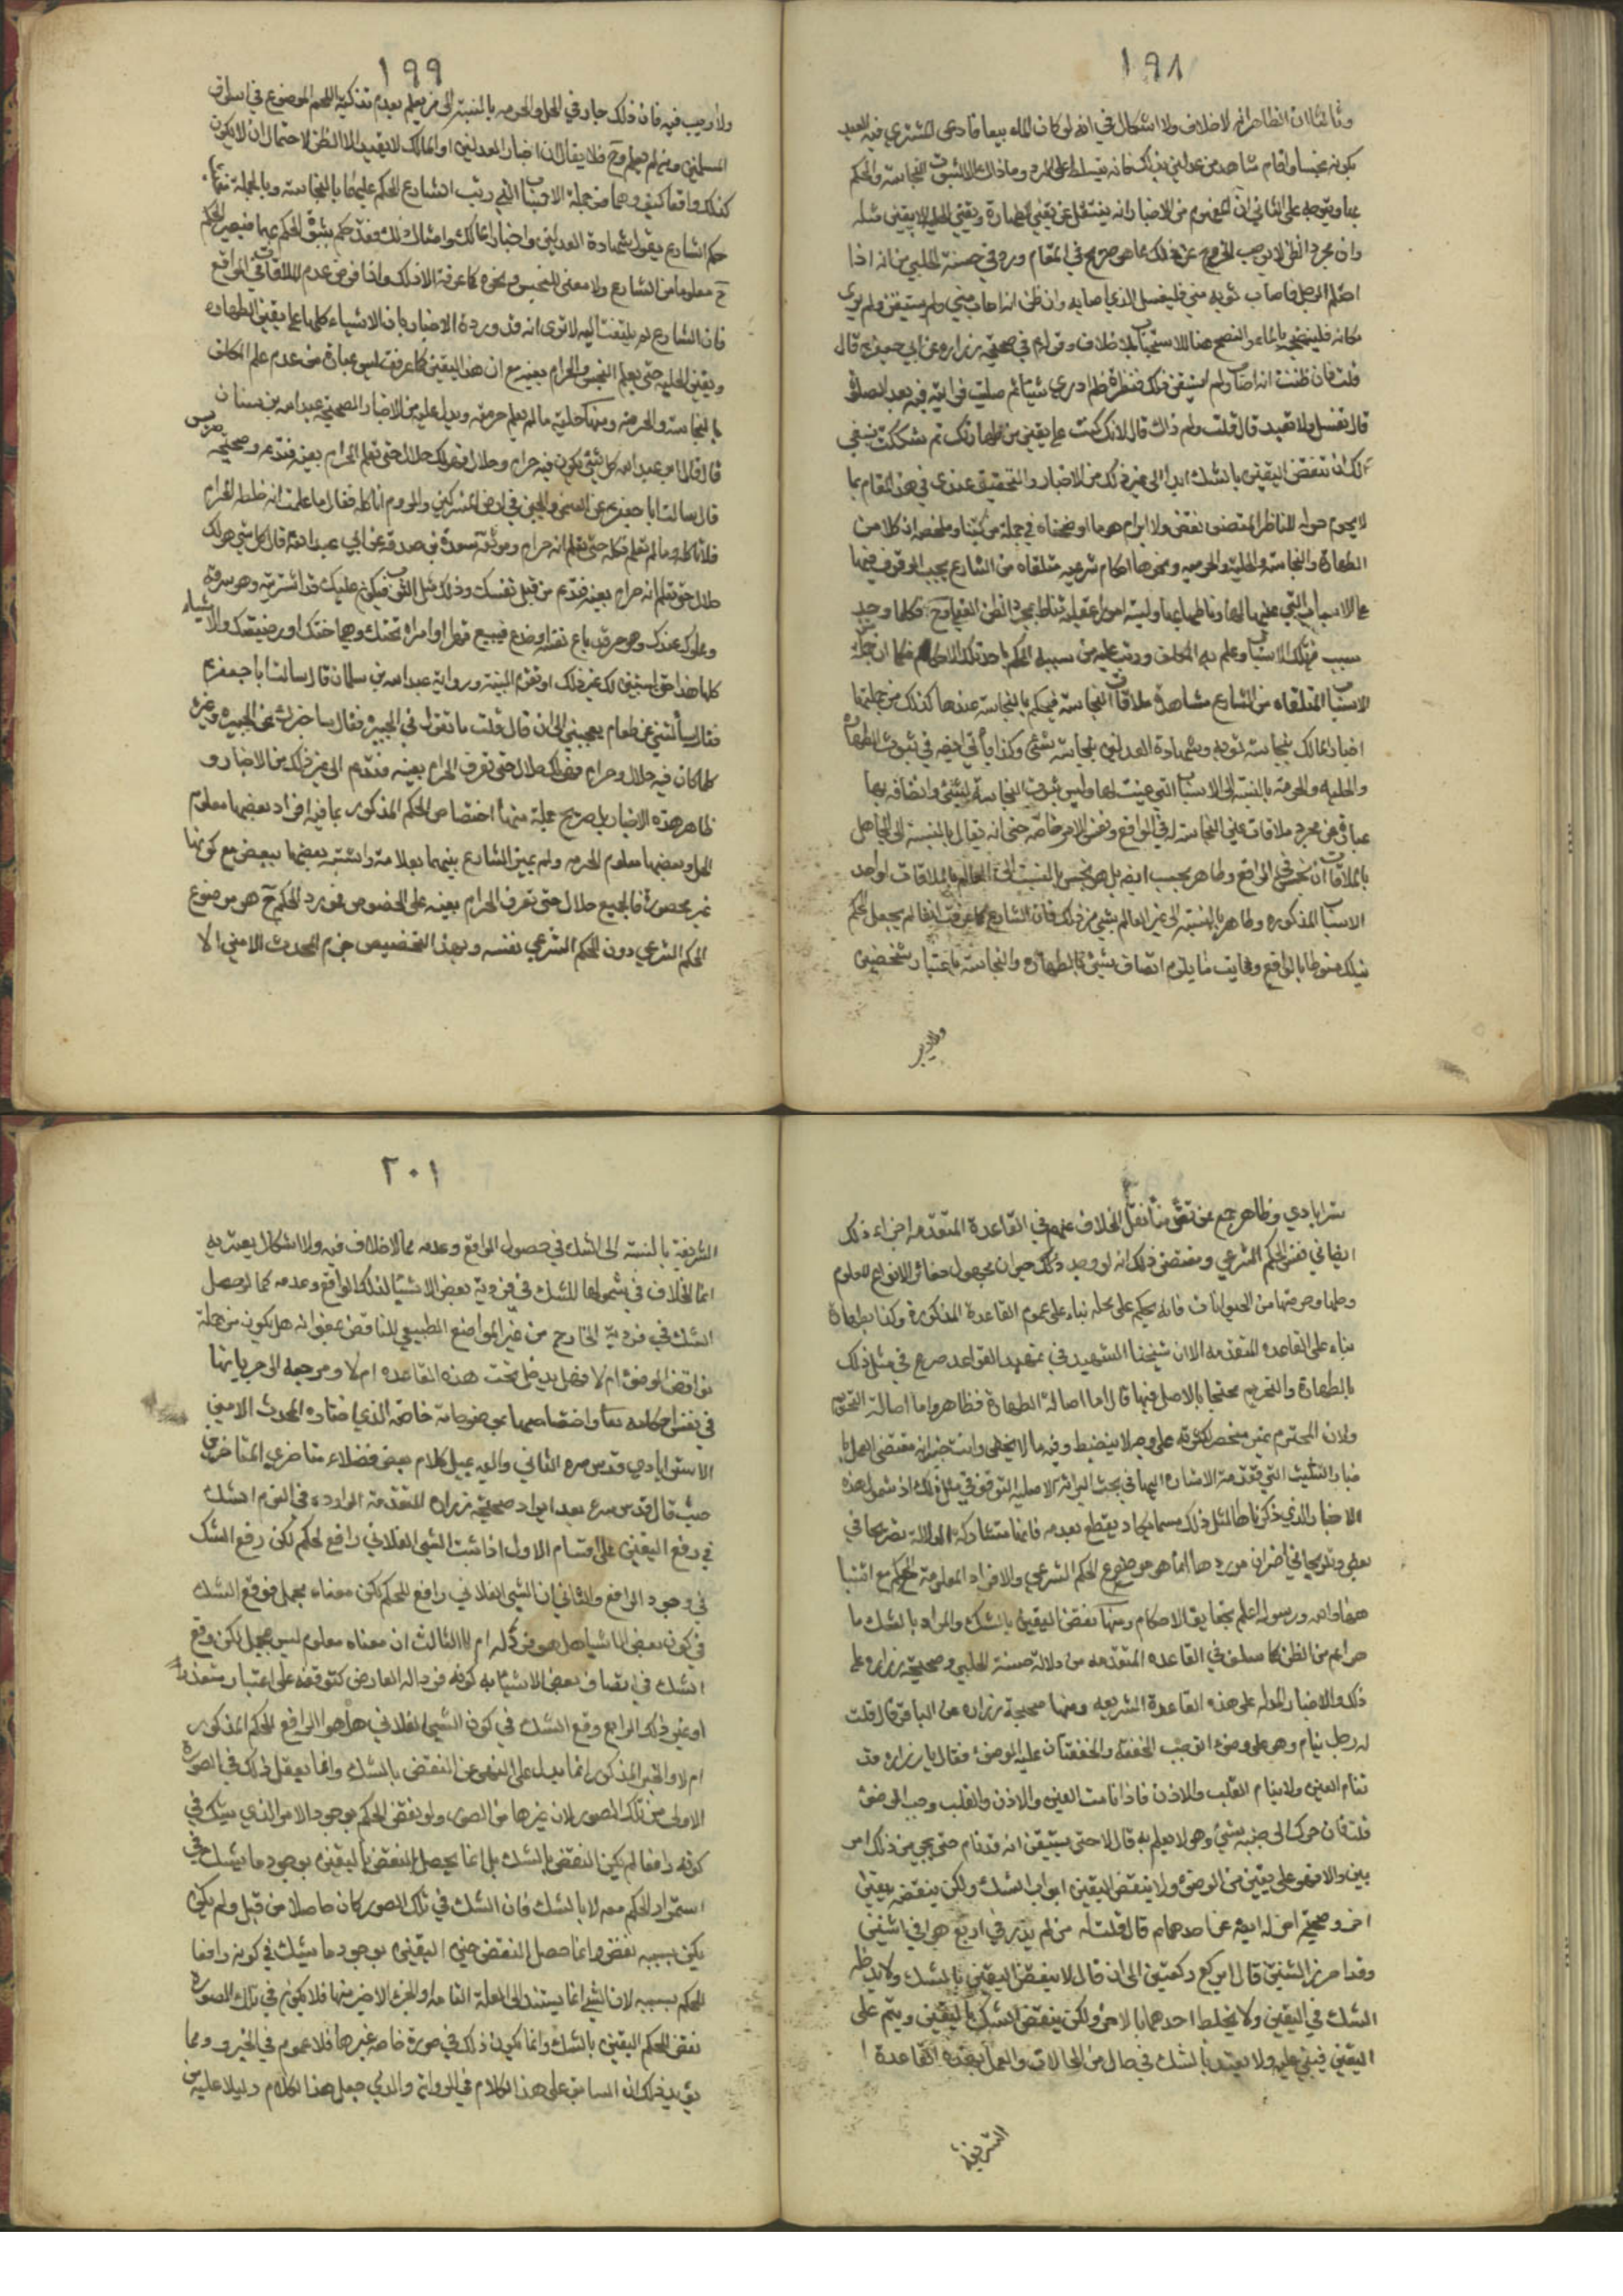 ١٩٨
وثالثا ان الظاهر انه لا خلاف ولا اشكال في انه لو كان الماء مبيعا فادعى المشتري فيه العيب
بكونه نجسا واقام شاهدين عدلين بذلك فانه يتسلط على الرد وما ذاك الا لثبوت النجاسة والحكم
بها ويتوجه على الثاني ان المفهوم من الاخبار انه ينتقل عن يقين الطهارة ويقين الحلية الا بيقين مثله
وان مجرد الظن لا يوجب الخروج عن ذلك مما هو صريح في المقام ورد في حسنة الحلبي من انه اذا
احتلم الرجل فاصاب ثوبه مني فليغسل الذي اصابه وان ظن انه اصابه مني ولم يستيقن ولم ير
مكانه فلينضحه بالماء والنضح هنا للاستحباب بلا خلاف وقوله في صحيحة زرارة عن ابي جعفر ع قال
قلت فان ظننت انه اصابه ولم استيقن ذلك فنظرت فلم ار شيئا ثم صليت فرايته فيه بعد الصلوة
قال تغسل ولا تعيد قال قلت ولم ذاك قال لانك كنت على يقين من طهارتك ثم شككت فليس ينبغي
لك ان تنقض اليقين بالشك ابدا الى غير ذلك من الاخبار والتحقيق عندي في هذا المقام بما
لا يحوم حوله للناظر المتصف نقض ولا ابرام هو ما اوضحناه في جملة من كتبنا وملخصه ان كلا من
الطهارة والنجاسة والحلية والحرمة ونحوها احكام شرعية متلقاة من الشارع يجب الوقوف فيها
على الاسباب التي عينها لها وناطها بها وليست امورا عقلية تناط بمجرد الظن العقلي وح فكلما وجد
سبب من تلك الاسباب وعلم به المكلف ورتب عليه من سببه الحكم باحد تلك الاحكام فكما ان من جملة
الاسباب المتلقاه من الشارع مشاهدة ملاقاة النجاسة فيحكم بالنجاسة عندها كذلك من جملتها
اخبار المالك بنجاسة ثوبه وشهادة العدلين بنجاسة شئ وكذا يأتي ايضه في ثبوت الطهارة
والحلية والحرمة بالنسبة الى الاسباب التي عينت لها وليس ثبوت النجاسة لشئ واتصافه بها
عبارة عن مجرد ملاقات عين النجاسة له في الواقع ونفس الامر خاصة حتى انه يقال بالنسبة الى الجاهل
بالملاقات انه نجس في الواقع وطاهر بحسب ايضه بل هو نجس بالنسبة الى العالم بالملاقات او احد
الاسباب المذكورة وطاهر بالنسبة الى غير العالم بشئ من ذلك فان الشارع كما عرفت ايضا لم يجعل الحكم
بذلك منوطا بالواقع وغاية ما يلزم اتصاف شئ بالطهارة والنجاسة باعتبار شخصين
ولا ريب
١٩٩
ولا ريب فيه فان ذلك جار في الحل والحرمه بالنسبة الى من يعلم بعدم تذكية اللحم الموضوع في اسواق
المسلمين ومن لم يعلم وح فلا يقال ان اخبار العدلين او المالك لا يفيد الا الظن لاحتمال ان لا يكون
كذلك واقعا كيف وهما من جملة الاسباب التي رتب الشارع الحكم عليها بالنجاسة وبالجملة فمتى
حكم الشارع بقبول شهادة العدلين واخبار المالك وامثال ذلك فقد حكم بثبوت الحكم بهما فيصير الحكم
ح معلوما من الشارع ولا معنى للنجس ونحوه كما عرفت الا ذلك واذا فرض عدم الملاقات في الواقع
فان الشارع لم يلتفت اليه لا ترى انه قد وردت الاخبار بان الاشياء كلها على يقين الطهارة
ويقين الحلية حتى يعلم النجس والحرام بعينه مع ان هذا اليقين كما عرفت ليس عبارة من عدم علم المكلف
بالنجاسة والحرمة ومنها حلية ما لم يعلم حرمته ويدل عليه من الاخبار الصحيحة عبد الله بن سنان
قال قال ابو عبد الله كل شئ يكون فيه حرام وحلال فهو لك حلال حتى تعلم الحرام بعينه فتدعه وصحيحة ضريس
قال سالت ابا جعفر ع عن السمن والجبن في ارض المشركين والروم اناكله فقال ما علمت انه خلطه الحرام
فلا تاكل وما لم تعلم فكله حتى تعلم انه حرام وموثقة مسعدة بن صدقة عن ابي عبد الله قال كل شئ هو لك
حلال حتى تعلم انه حرام بعينه فتدعه من قبل نفسك وذلك مثل الثوب يكون عليك قد اشتريته وهو سرقة
ومملوك عندك وهو حر قد باع نفسه او خدع فبيع قهرا او امراة تحتك وهي اختك او رضيعتك والاشياء
كلها على هذا حتى يستبين لك غير ذلك او تقوم البينة ورواية عبد الله بن سليمان قال سالت ابا جعفر ع
فقال سألتني عن طعام يعجبني الى ان قال قلت ما تقول في الجبن فقال ساخبرك عن الجبن وغيره
كلما كان فيه حلال وحرام فهو لك حلال حتى تعرف الحرام بعينه فتدعه الى غير ذلك من الاخبار و
ظاهر هذه الاخبار بل صريح جملة منها اختصاص الحكم المذكور بما فيه افراد بعضها معلوم
الحل وبعضها معلوم الحرمه ولم يميز الشارع بينهما بعلامة واشتبه بعضها ببعض مع كونها
غير محصورة فالجميع حلال حتى تعرف الحرام بعينه على الخصوص فمورد الحكم ح هو موضوع
الحكم الشرعي دون الحكم الشرعي نفسه وبهذا التخصيص جزم المحدث الامين الا
سترابادي وظاهر جمع ممن تقدمنا نقل الخلاف عنهم في القاعدة المتقدمه اجراء ذلك
ايضا في نفس الحكم الشرعي ومقتضى ذلك انه لو وجد ذلك حيوان مجهول مغائر الانواع المعلوم
وحلها وحرمتها من الحيوانات فانه يحكم على بحله بناء على عموم القاعدة المذكورة وكذا بطهارة
بناء على القاعدة المتقدمه الا ان شيخنا الشهيد في تمهيد القواعد صرح في مثل ذلك
بالطهارة والتحريم محتجا بالاصل فيها قال اما اصالة الطهارة فظاهر واما اصالة التحريم
ولان المحترم غير منحصر لكثرته على وجه لا ينضبط وفيه ما لا يخفى وانت خبير بان مقتضى العمل با
خبار التثليث التي تقدمت الاشارة اليها في بحث البرائة الاصلية التوقف في مثل ذلك اذ شمول هذه
الاخبار الذي ذكرناها لمثل ذلك مما يكاد يقطع بعدمه فانها متشاركة الدلالة تصريحا في
بعض وتلويحا في اخر ان موردها انما هو موضوع الحكم الشرعي والافراد المعلومة الحكم مع اشتبا
هها والله ورسوله اعلم بحقايق الاحكام ومنها نقض اليقين بالشك والمراد بالشك ما
هو اعم من الظن كما سلف في القاعدة المتقدمه من دلالة حسنة الحلبي وصحيحة زرارة على
ذلك والاخبار الدالة على هذه القاعدة الشريفه ومنها صحيحة زرارة عن الباقر قال قلت
له رجل ينام وهو على وضوء اتوجب الخفقة والخفقتان عليه الوضوء فقال يا زرارة قد
تنام العين ولا ينام القلب والاذن فاذا نامت العين والاذن والقلب وجب الوضوء
قلت فان حرك الى جنبه شئ وهو لا يعلم به قال لا حتى يستيقن انه قد نام حتى يجئ من ذلك امر
بين والا فهو على يقين من الوضوء ولا ينقض اليقين ابدا بالشك ولكن ينقضه بيقين
اخر وصحيحة اخرى له ايضه عن احدهما ع قال قلت له من لم يدر في اربع هو او في اثنتين
وقد احرز الثنتين قال يركع ركعتين الى ان قال لا ينقض اليقين بالشك ولا يدخل
الشك في اليقين ولا يخلط احدهما بالاخر ولكن ينقض الشك باليقين ويتم على
اليقين فيبني عليه ولا يعتد بالشك في حال من الحالات والعمل بهذه القاعدة
الشريفة
٢٠١
الشريفة بالنسبة الى الشك في حصول الواقع وعدمه مما لا خلاف فيه ولا اشكال يعتريه
انما الخلاف في شمولها للشك في فردية بعض الاشيا لذلك الواقع وعدمه كما لو حصل
الشك في فردية الخارج من غير المواضع الطبيعي للناقض بمعنى انه هل يكون من جملة
نواقض الوضوء ام لا فهل يدخل تحت هذه القاعده ام لا ومرجعه الى جريانها
في نفس احكامه تعا واختصاصها بموضوعاته خاصة الذي اختاره المحدث الامين
الاسترابادي وقدس سره الثاني واليه يميل كلام بعض فضلاء متاخري المتاخرين
حيث قال قدس سره بعد ايراد صحيحة زرارة المتقدمة الواردة في النوم الشك
في رفع اليقين على اقسام الاول اذا ثبت الشئ الفلاني رافع لحكم لكن رفع الشك
في وجود الرافع والثاني ان الشئ الفلاني رافع للحكم لكن معناه مجمل فوقع الشك
في كون بعض الاشياء هل هو فرد له ام لا الثالث ان معناه معلوم ليس بمجمل لكن وقع
الشك في اتصاف بعض الاشياء به كونه فردا له العارض كتوقفه على اعتبار متعذر
او غير ذلك الرابع وقع الشك في كون الشئ الفلاني هل هو الرافع للحكم المذكور
ام لا والخبر المذكور انما يدل على النهي عن النقض بالشك وانما يعقل ذلك في الصورة
الاولى من تلك الصور لان غيرها من الصور لو نقض الحكم بوجود الامر الذي يشك في
كونه رافعا لم يكن النقض بالشك بل انما يحصل النقض باليقين بوجود ما يشك في
استمرار الحكم معه لا بالشك فان الشك في تلك الصور كان حاصلا من قبل ولم يكن
يكن بسببه نقض وانما حصل النقض حين اليقين بوجود ما يشك في كونه رافعا
للحكم بسببه لان الشئ انما يستند الى العلة التامة او الجزء الاخير منها فلا يكون في تلك الصورة
نقض للحكم اليقين بالشك وانما يكون ذلك في صورة خاصة غيرها فلا عموم في الخبر ومما
يؤيد ذلك ان السابق على هذا الكلام في الرواية والذي جعل هذا الكلام دليلا عليه من